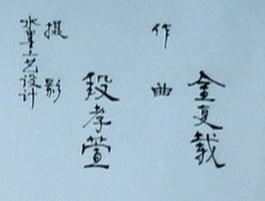 作曲
金复载
摄影
段孝萱
水墨工艺设计